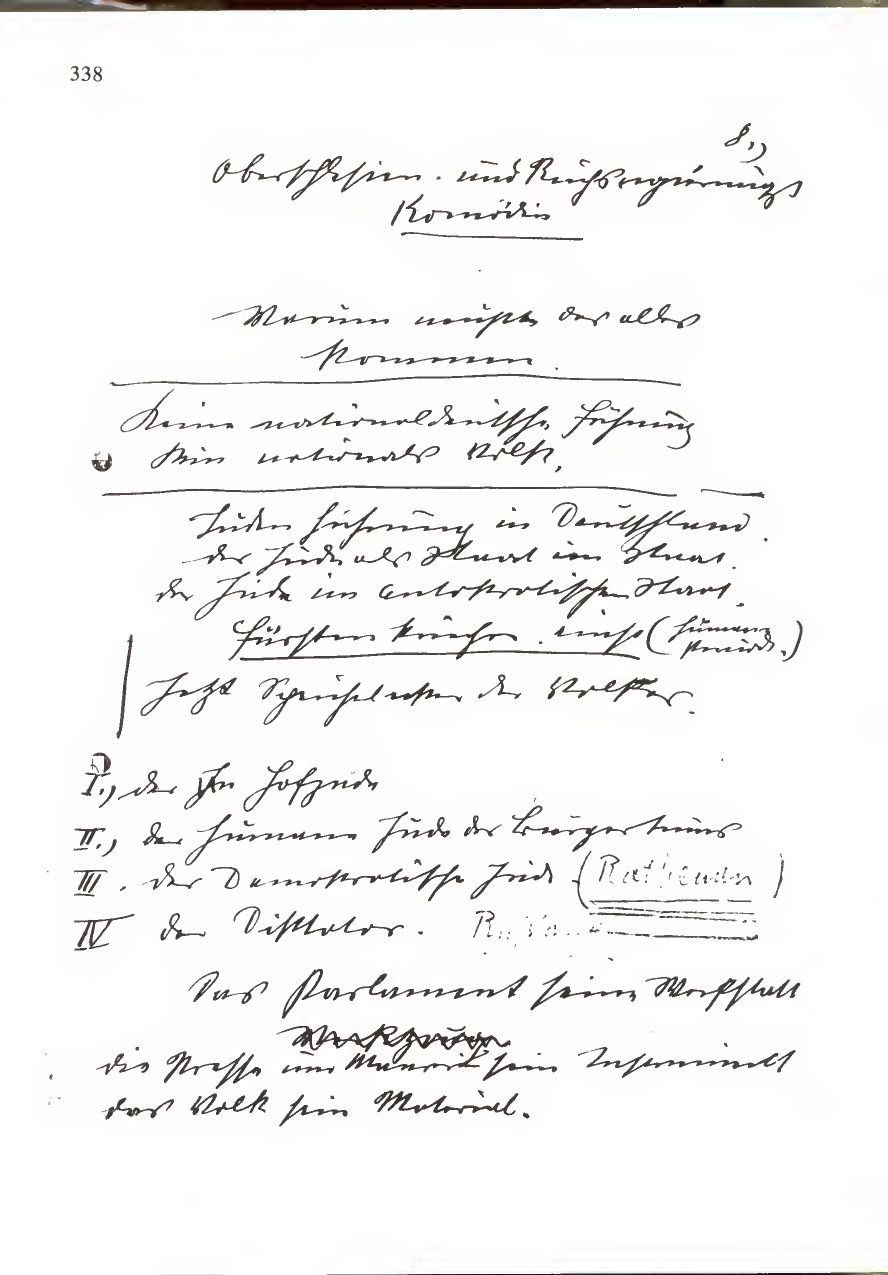 338
8.,)
Oberschlesien- und Reichsregierungs
Komödie
Warum mußte das alles
kommen.
Keine nationaldeutsche Führung
Kein nationales Volk.
Juden Führung in Deutschland.
der Jude als Staat im Staat.
der Jude im autokratischen Staat.
Fürsten einst (Humane
Periode.)
Jetzt der Volkes.
I., der Hofjude
II., der Humane Jude des Bürgertums
III. der Demokratische Jude (Rathenau)
IV der Diktator. Rußland
Das Parlament seine Werkstatt
Werkzeug
die Presse und sein
das Volk sein Material.